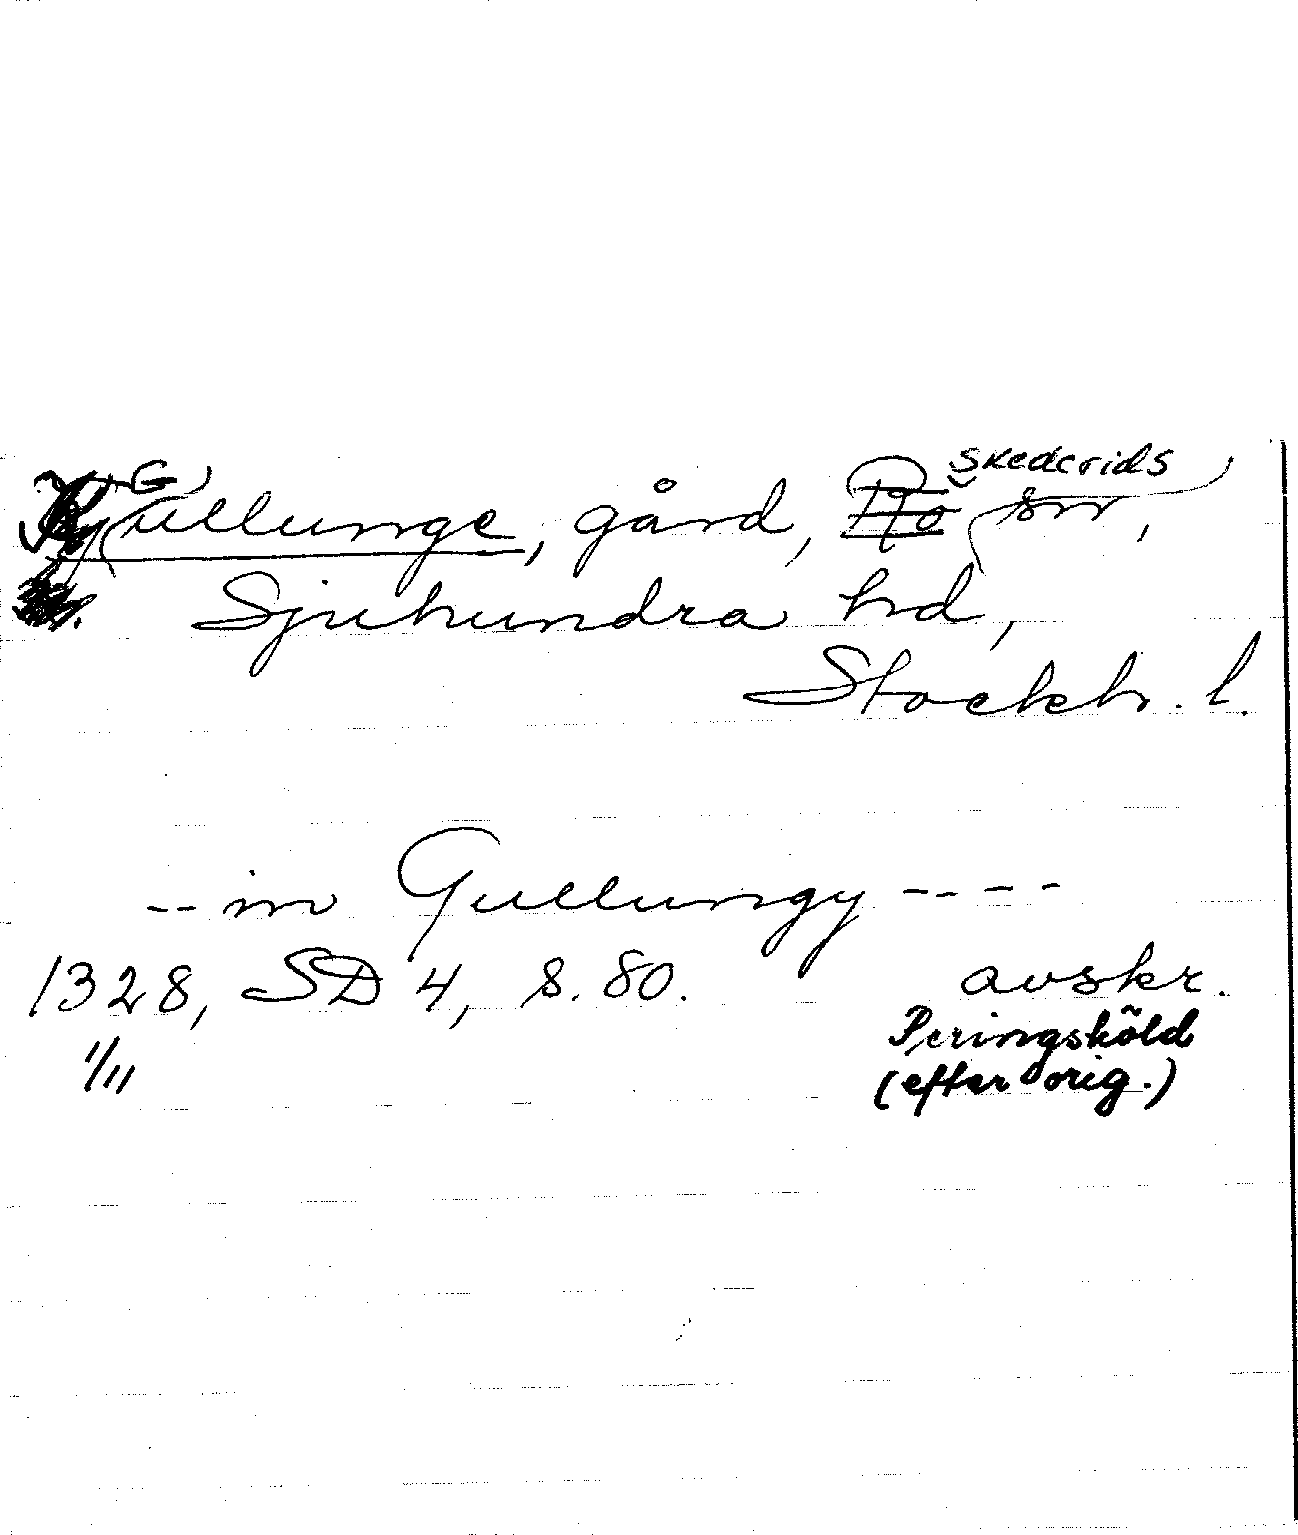 Gullunge, gård, Rö Skederids sn,
Sjuhundra hd,
Stockh. l.
-- in Gullungy ----
1328, SD 4, s. 80. avskr.
1/11 Peringsköld
(efter orig.)